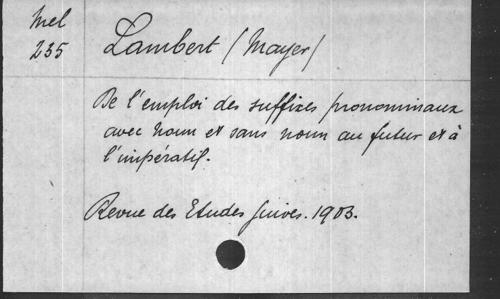 Mel
235
Lambert (Mayer)
De l'emploi des suffixes pronominaux
avec noun et sans noun au futur et à
l'impératif.
Revue des Etudes juives. 1903.